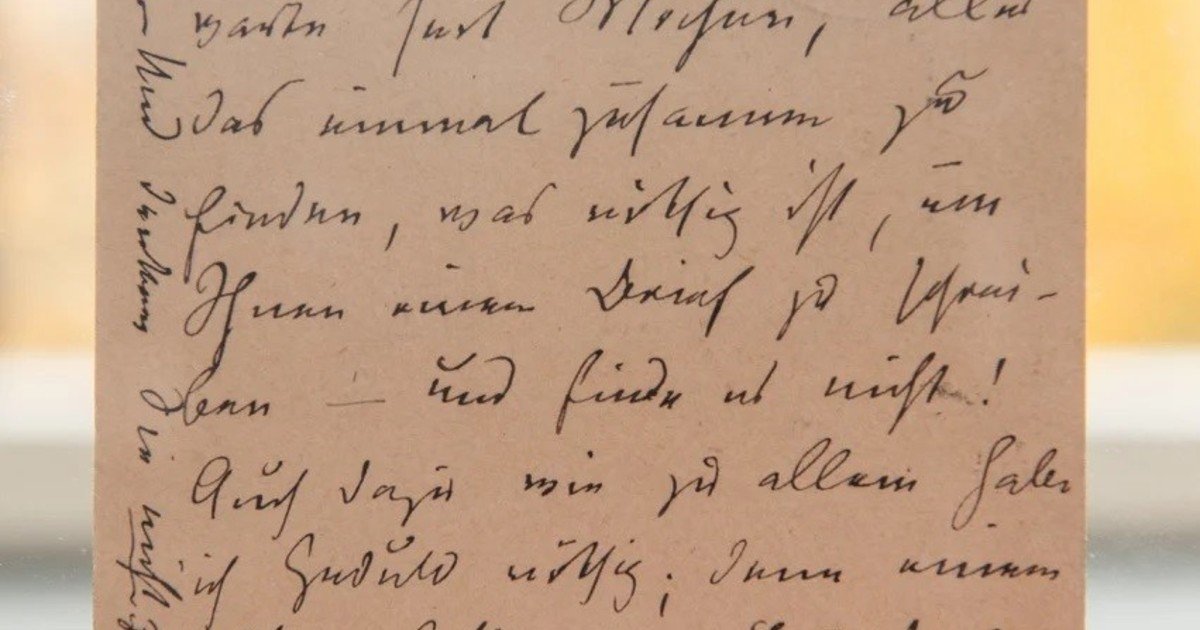 warte seit Wochen, alles
das einmal zusammen zu
finden, was nöthig ist, um
Ihnen einen Brief zu schrei-
ben — und finde es nicht!
Auch dazu wie zu allem habe
ich Geduld nöthig; denn einem
Und Sie nicht